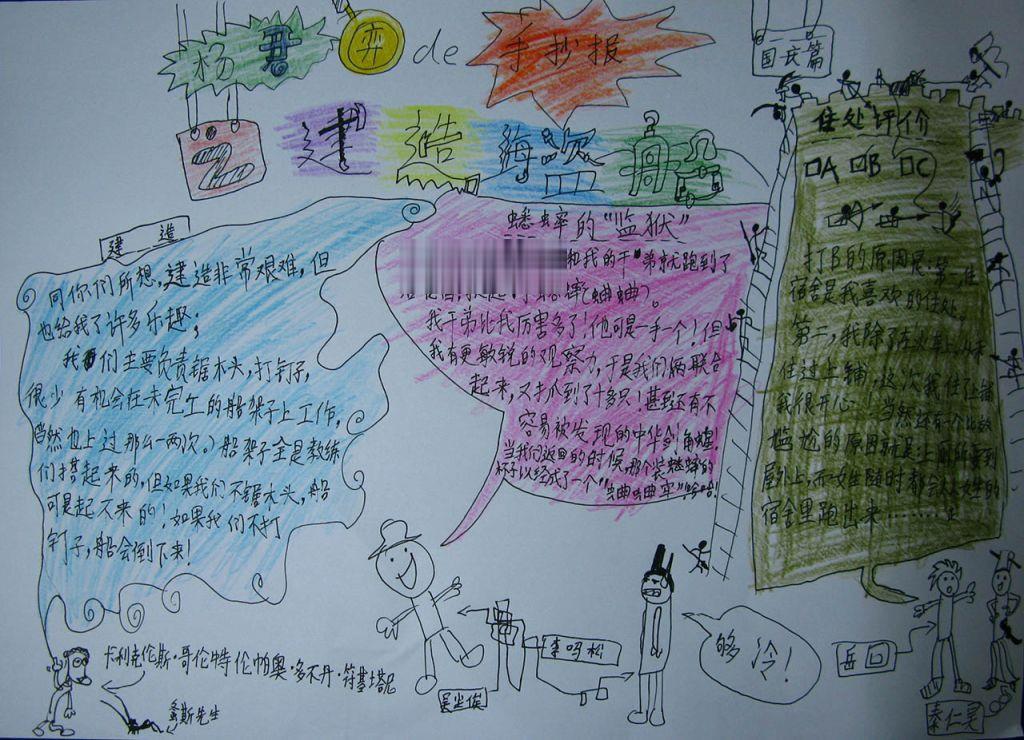 杨君弈de手抄报
国民篇
2
建造海盗船
建造
同你们所想,建造非常艰难,但
也给我了许多乐趣;
我们主要负责锯木头,打钉子,
很少有机会在未完工的船架子上工作,
(当然也上过那么一两次。)船架子全是教练
们搭起来的,但如果我们不锯木头,船
可是起不来的!如果我们不打
钉子,船会倒下来!
蟋蟀的"监狱"
和我的干弟就跑到了
我干弟比我厉害多了!他可是一手一个!但
我有更敏锐的观察力,于是我们俩联合
起来,又扑到了十多只!甚到还有不
容易被发现的中华剑角蝗!
当我们返回的时候,那个装蟋蟀的
杯子以经成了一个"曲曲牢"哈哈!
住处评价
A B C
打B的原因是:第一,住
宿舍是我喜欢的住处。
第二,我除了在火车上从未
住过上铺,这次我住上铺
我很开心!当然还有一个比较
尴尬的原因就是:上厕所要到
屋外上,而女生随时都会从女生的
宿舍里跑出来……
卡利克伦斯·哥伦特伦帕奥·多不丹·符基塔尼
李鸣松
够冷!
岳回
秦仁昊